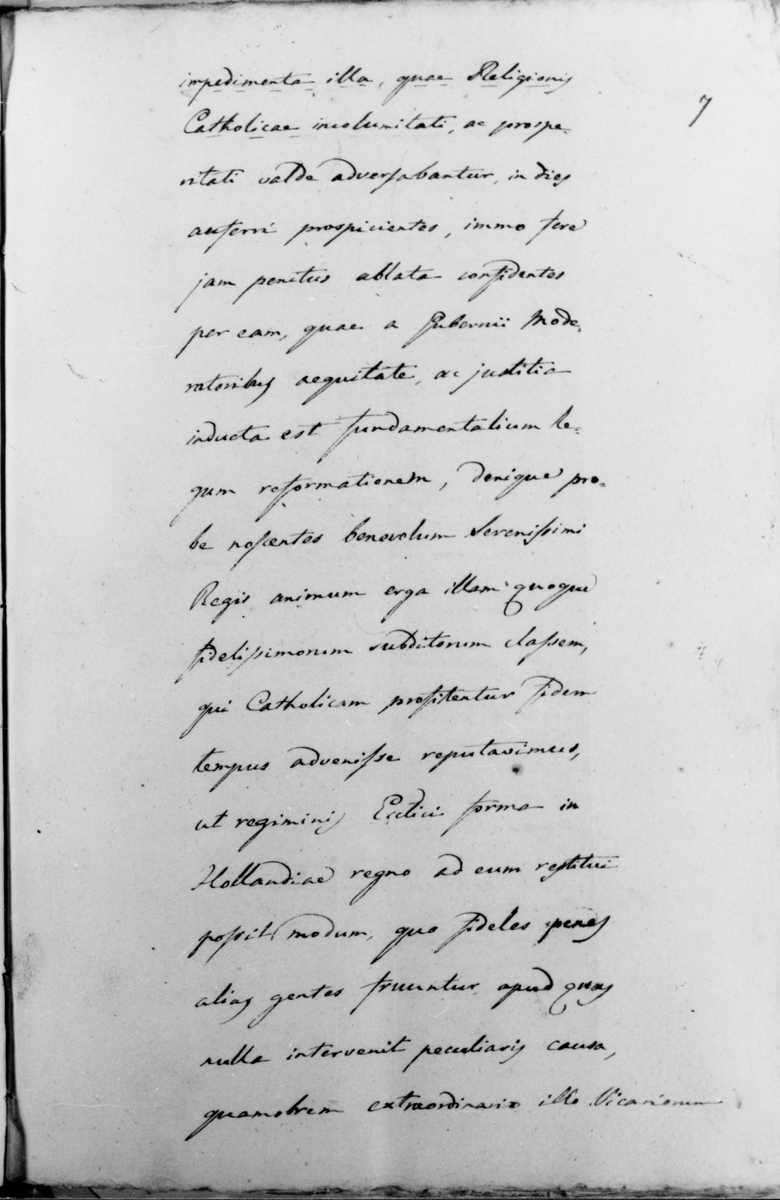 impedimenta illa, quae Religionis
7
Catholicae incolumitati, ac prospe-
ritati valde adversabantur, in dies
auferri prospicientes, immo fere
jam penitus ablata confidentes
per eam, quae a Gubernii Mode-
ratoribus aequitate, ac justitia
inducta est fundamentalium le-
gum reformationem, denique pro-
be noscentes benevolum Serenissimi
Regis animum erga illam quoque
fidelissimorum subditorum classem,
qui Catholicam profitentur fidem
tempus advenisse reputavimus,
ut regiminis Ecclici forma in
Hollandiae regno ad eum restitui
possit modum, quo fideles penes
alias gentes fruuntur apud quas
nulla intervenit peculiaris causa,
quamobrem extraordinario illo Vicariorum